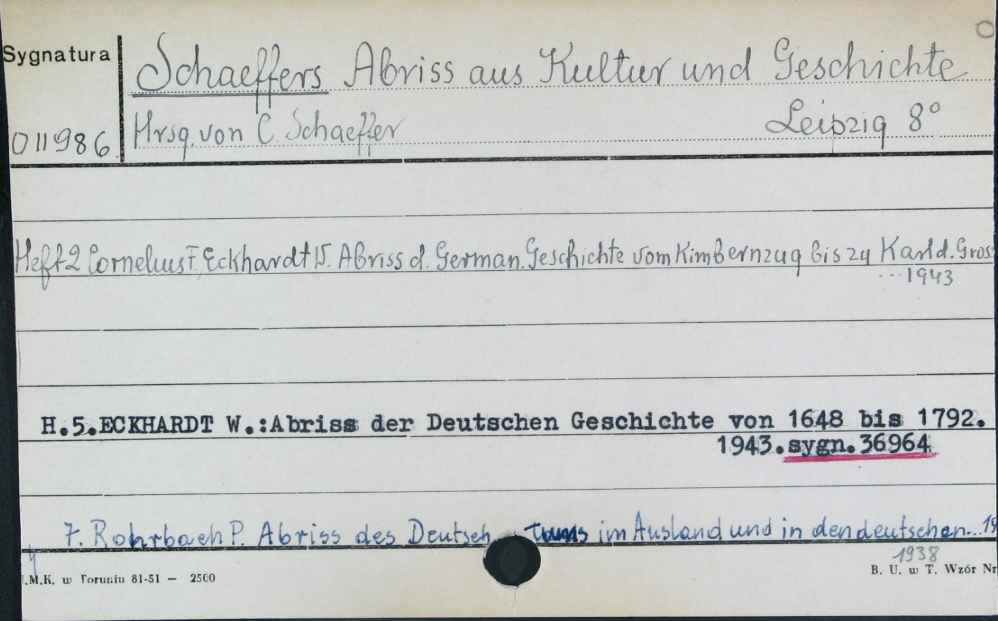 Sygnatura
Schaeffers Abriss aus Kultur und Geschichte
011986 Hrsg. von C. Schaeffer Leipzig 8°
Heft 2 Cornelius F. Eckhardt W. Abriss d. German. Geschichte vom Kimbernzug bis zu Karl d. Gros
...1943
H.5.ECKHARDT W.:Abriss der Deutschen Geschichte von 1648 bis 1792.
1943.sygn.36964
7. Rohrbach P. Abriss des Deutsch tums im Ausland und in den deutschen...
1938
.M.K. w Toruniu 81-51 — 2500
B. U. w T. Wzór Nr